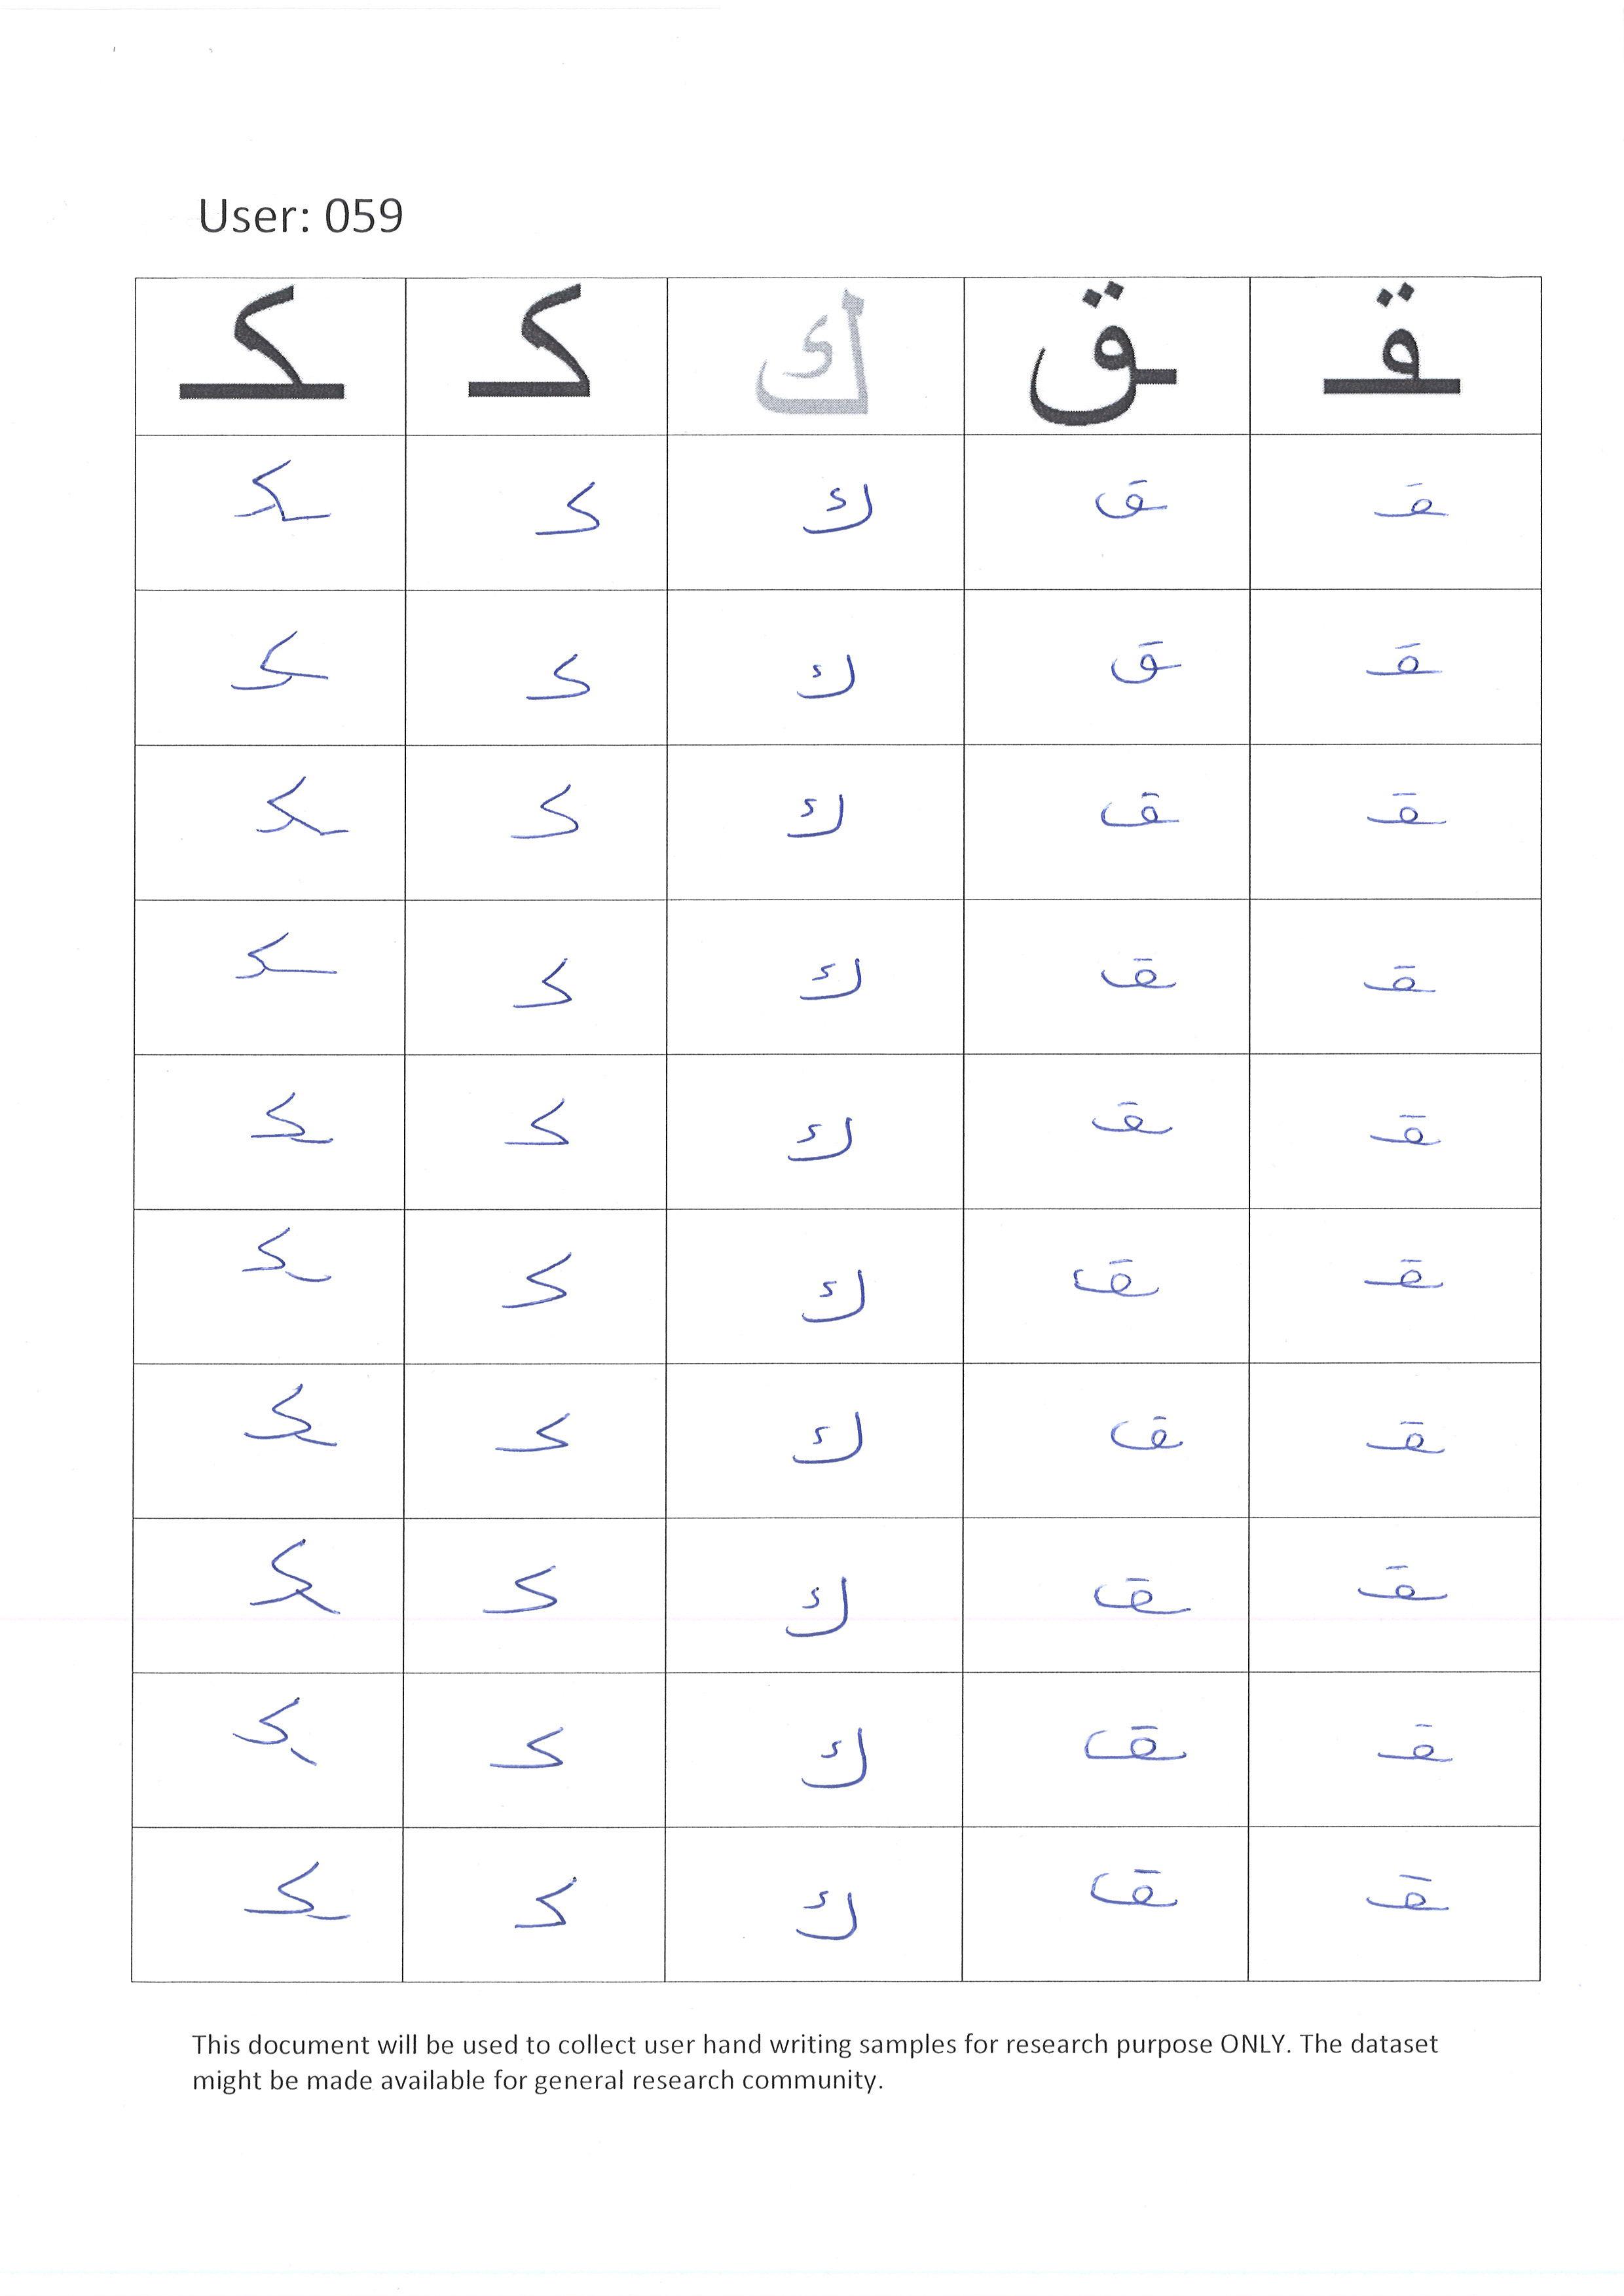 User: 059
ـقـ ـق ك كـ ـكـ
ـقـ ـق ك كـ ـكـ
ـقـ ـق ك كـ ـكـ
ـقـ ـق ك كـ ـكـ
ـقـ ـق ك كـ ـكـ
ـقـ ـق ك كـ ـكـ
ـقـ ـق ك كـ ـكـ
ـقـ ـق ك كـ ـكـ
ـقـ ـق ك كـ ـكـ
ـقـ ـق ك كـ ـكـ
ـقـ ـق ك كـ ـكـ
This document will be used to collect user hand writing samples for research purpose ONLY. The dataset
might be made available for general research community.